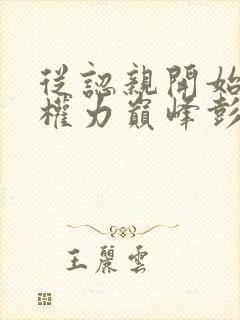 從認親開始
權力巔峰彭
王麗雲